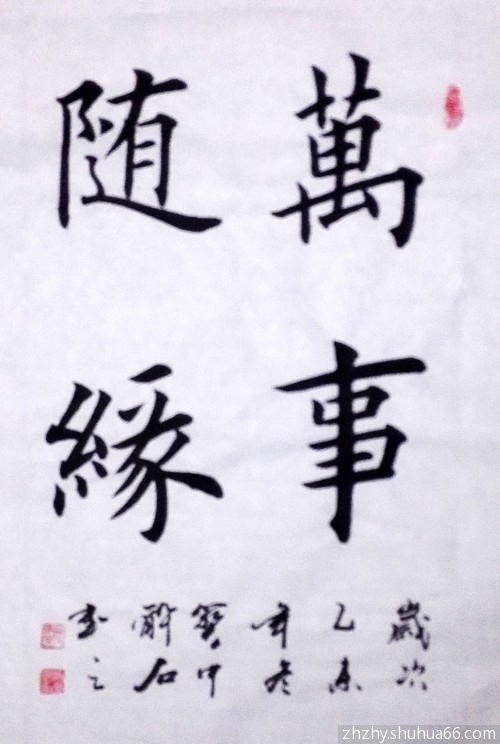 萬事
随緣
歲次
乙未
年冬
中
石
書之
zhzhy.shuhua66.com